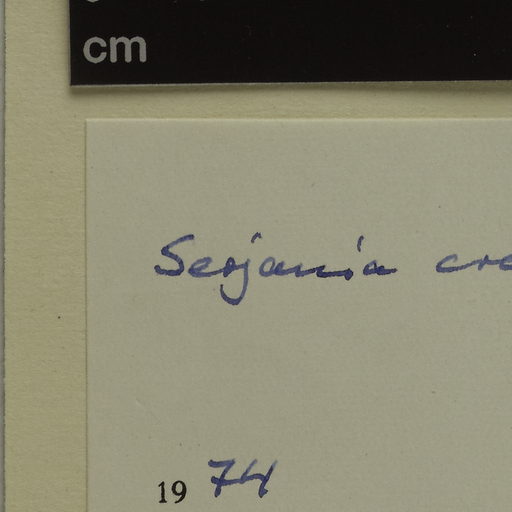 cm
Serjania cre
1974